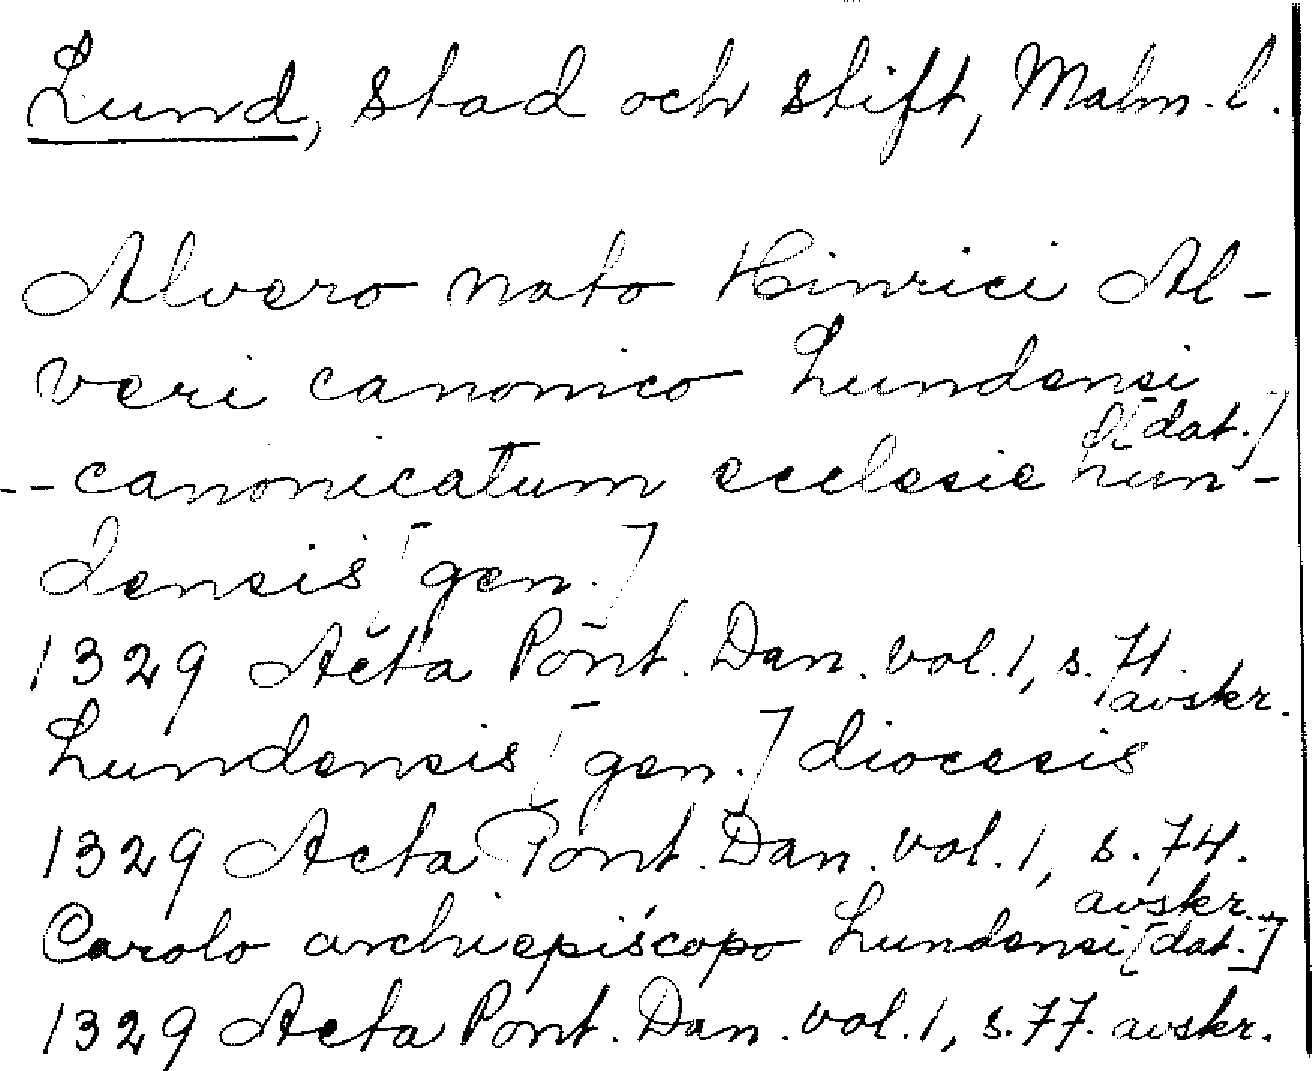 Lund, stad och stift, Malm. l.
Alvero nato Hinrici Al-
veri canonico Lundensi
[dat.]
-- canonicatum ecclesie Lun-
densis [gen.]
1329 Acta Pont. Dan. vol. 1, s. 74.
avskr.
Lundensis [gen.] diocesis
1329 Acta Pont. Dan. vol. 1, s. 74.
avskr.
Carolo archiepiscopo Lundensi [dat.]
1329 Acta Pont. Dan. vol. 1, s. 77. avskr.